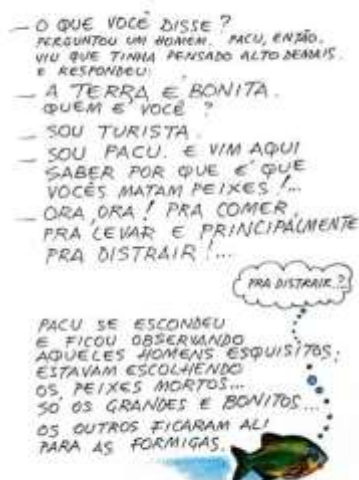 — O QUE VOCÊ DISSE?
PERGUNTOU UM HOMEM. PACU, ENTÃO,
VIU QUE TINHA PENSADO ALTO DEMAIS.
E RESPONDEU:
— A TERRA É BONITA.
QUEM É VOCÊ?
— SOU TURISTA.
— SOU PACU. E VIM AQUI
SABER POR QUE É QUE
VOCÊS MATAM PEIXES!...
— ORA, ORA! PRA COMER,
PRA LEVAR E PRINCIPALMENTE
PRA DISTRAIR!...
PRA DISTRAIR..?
PACU SE ESCONDEU
E FICOU OBSERVANDO
AQUELES HOMENS ESQUISITOS;
ESTAVAM ESCOLHENDO
OS PEIXES MORTOS...
SÓ OS GRANDES E BONITOS...
OS OUTROS FICARAM ALI
PARA AS FORMIGAS.